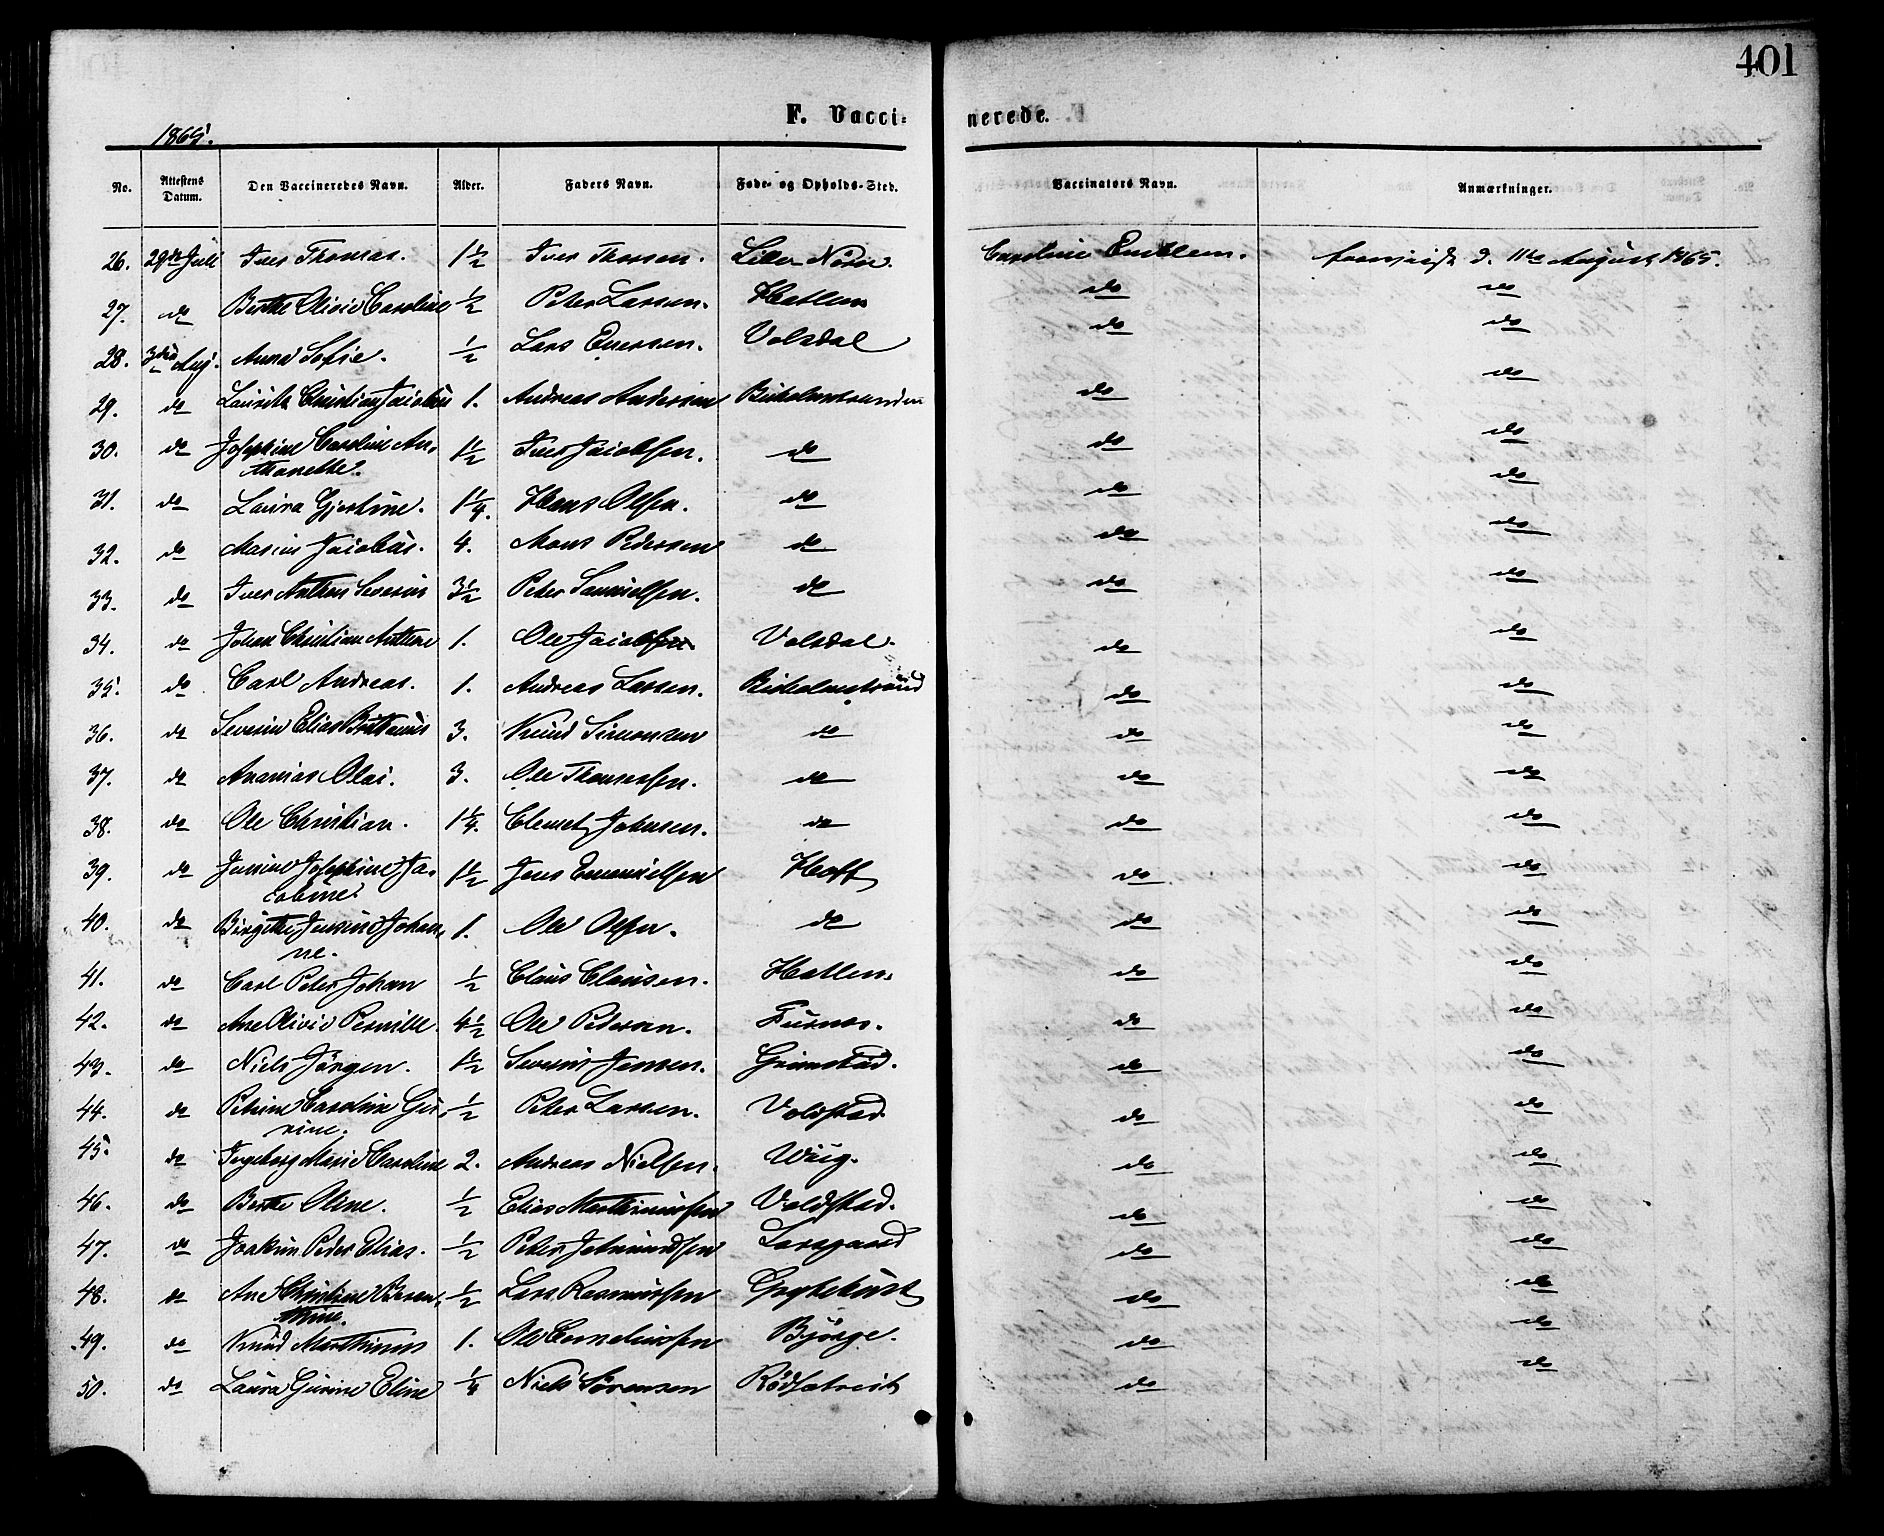 401
F. Vaccinerede.
1865.
No. Attestens Datum. Den Vaccineredes Navn. Alder. Faders Navn. Føde- og Opholds-Sted. Vaccinators Navn. Anmærkninger.
26. 29de Juli Iver Thomas. 1 1/2 Iver Thorsen. Liber Nörve. Caroline Emblem. d. 11te August 1865.
27. do Berthe Olivie Caroline 1/2 Peter Larsen. Hatlen do do
28. 3die Aug. Anna Sofie. 1/2 Lars Iversen. Volsdal do do
29. do Laurits Christian Jacobus 1. Andreas Andersen do do
30. do Josephine Caroline An-
thonette. 1 1/2 Iver Jacobsen. do do do
31. do Laura Gjertine. 1 1/4. Hans Olsen. do do do
32. do Masius Jacobus. 4. Mons Pedersen do do do
33. do Iver Anthon Severin 3 1/2 Peter Samuelsen. do do do
34. do Johan Christian Anthon 1. Ole Jacobsen. Volsdal. do do
35. do Carl Andreas. 1. Andreas Larsen. do do
36. do Severin Elias 3. Knud Simonsen do do do
37. do Ananias Olai. 3. Ole Thomassen. do do do
38. do Ole Christian. 1 1/4. Clemet Johnsen. do do do
39. do Jensine Josephine Ja-
cobine. 1 1/2 Jens Emanuelsen Hoff do do
40. do Birgitte Jensine Johan-
ne. 1. Ole Olsen. do do do
41. do Carl Peter Johan 1/2 Claus Clausen. Hatlen. do do
42. do Ane Olivie Pernille. 4 1/2 Ole Pedersen. Furnes. do do
43. do Niels Jörgen. 1 1/2 Severin Jensen. Grimstad. do do
44. do Petrine Caroline Gu-
rine. 1/2 Peter Larsen. Voldstad do do
45. do Ingeborg Marie Caroline 2. Andreas Nielsen. Wiig. do do
46. do Berthe Oline. 1/2 Elias Marthinussen Voldstad. do do
47. do Joakim Peder Elias. 1/2 Peter Larsgaard do do
48. do Ane Christine Beren-
thine. 1/2 Lars Rasmussen do do
49. do Knud Marthinus 1. Ole Corneliussen Björge. do do
50. do Laura Gurine Eline 1/4 Niels Sörensen Rödsætreit do do